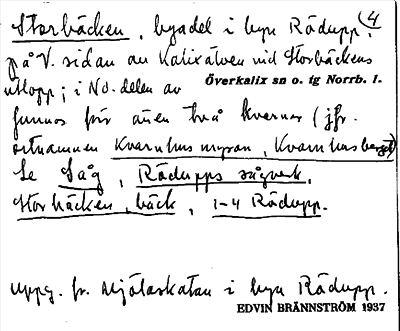 Storbäcken, byadel i byn Rädupp, 4
på V. sidan av Kalixälven vid Storbäckens
utlopp; i NO. delen av Överkalix sn o. tg Norrb. l.
funnos för även två kvarnar (jfr.
ortnamnen Kvarnhusmyran, Kvarnhusberget)
Se Såg, Rädupps sågverk,
Storbäcken, bäck, 1-4 Rädupp.
Uppg. fr. Mjölaskatan i byn Rädupp.
EDVIN BRÄNNSTRÖM 1937